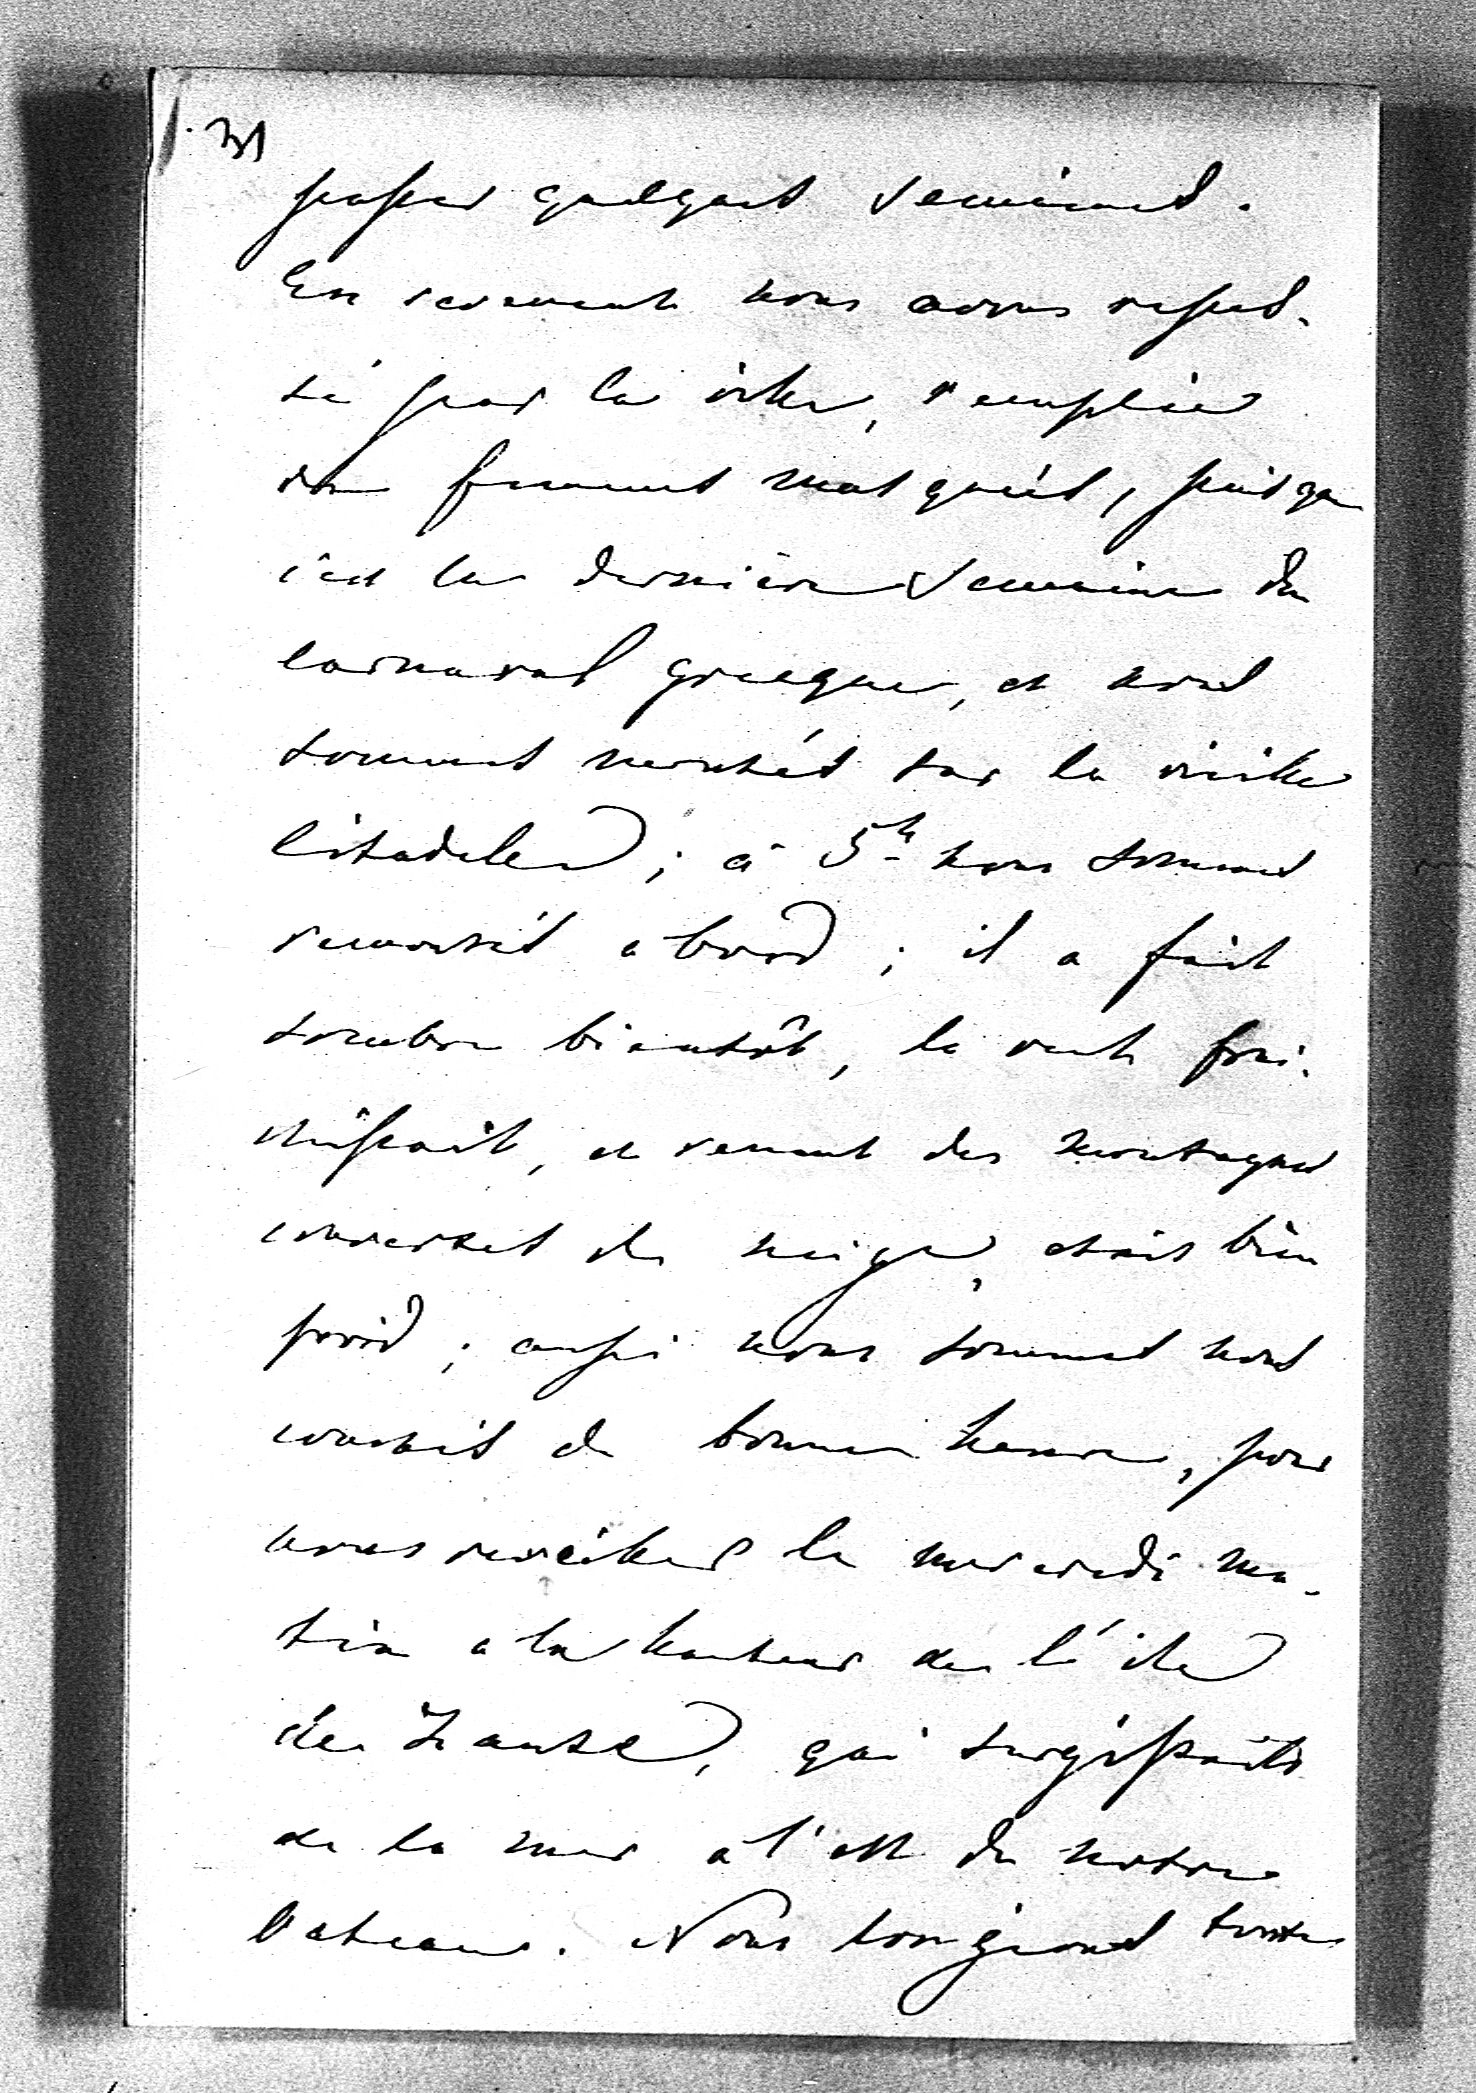 31
passer quelques semaines.
En revenant nous avons repas-
sé par la ville, remplie
de femmes masquées, puisque
c'est la dernière semaine du
carnaval grecque, et nous
sommes montés sur la vieille
citadelle; à 5h nous sommes
remontés a bord; il a fait
sombre bientôt, le vent frai-
chissait, et venant des montagnes
couvertes de neige, etait bien
froid; aussi nous sommes nous
couchés de bonne heure, pour
nous reveiller le mercredi ma-
tin a la hauteur de l'île
de Zante, qui surgissait
de la mer a l'est de notre
bateau. Nous longions toute